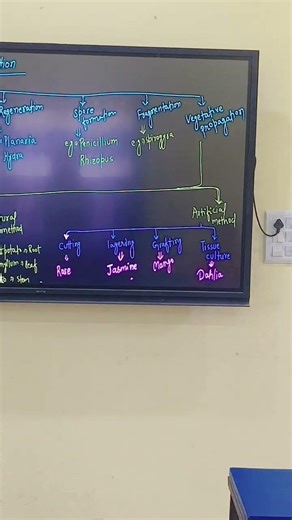 tion
Regeneration
Planaria
Hydra
Spore
formation
e.g → Penicillium
Rhizopus
Fragmentation
e.g → Spirogyra
Vegetative
propagation
ural
method
→ Root
→ leaf
→ stem
Artificial
method
Cutting
Rose
layering
Jasmine
Grafting
Mango
Tissue
culture
Dahlia